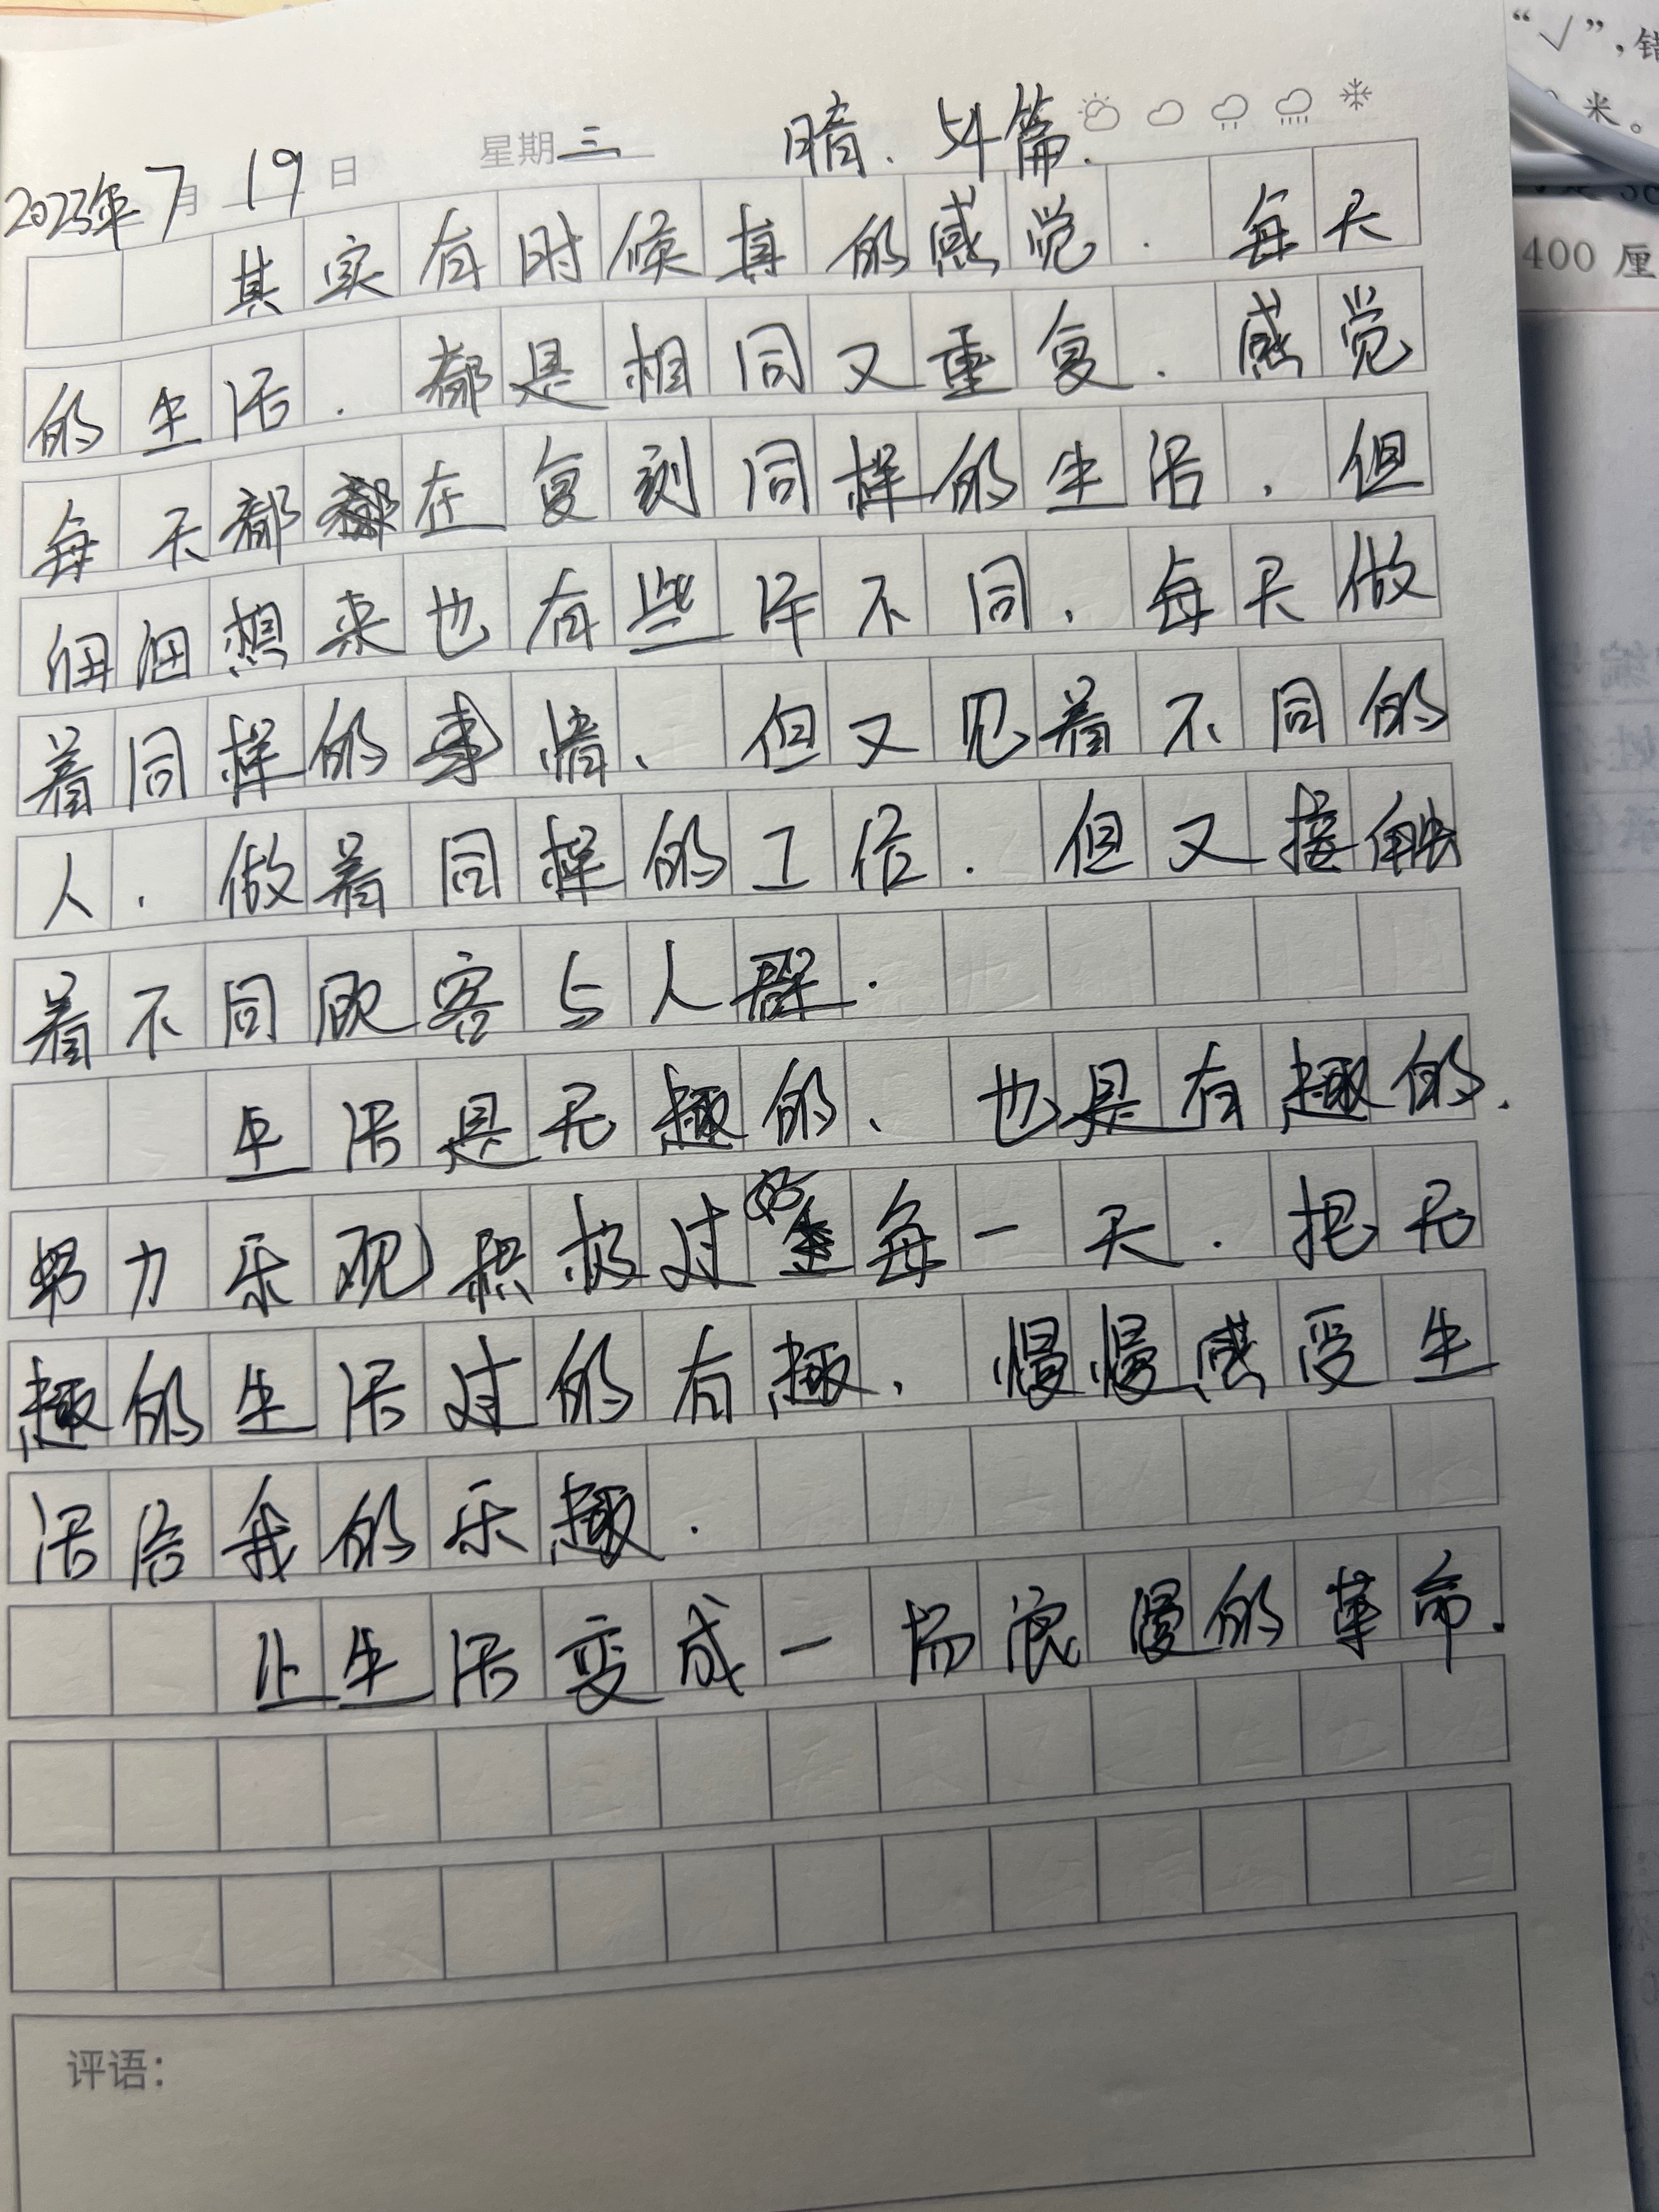 “√”，错
米。
400 厘
2023年7月19日 星期三 晴. 54篇.
其实有时候真的感觉. 每天
的生活. 都是相同又重复. 感觉
每天都在复刻同样的生活, 但
细细想来也有些许不同, 每天做
着同样的事情、但又见着不同的
人. 做着同样的工作. 但又接触
着不同顾客与人群.
生活是无趣的、也是有趣的.
努力乐观积极过好每一天. 把无
趣的生活过的有趣, 慢慢感受生
活给我的乐趣.
让生活变成一场浪漫的革命.
评语：